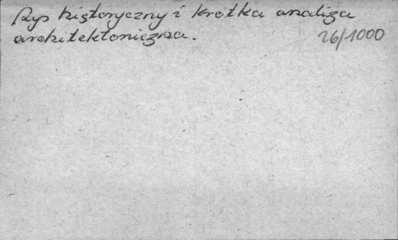 Rys historyczny i krótka analiza
architektoniczna.
26/1000